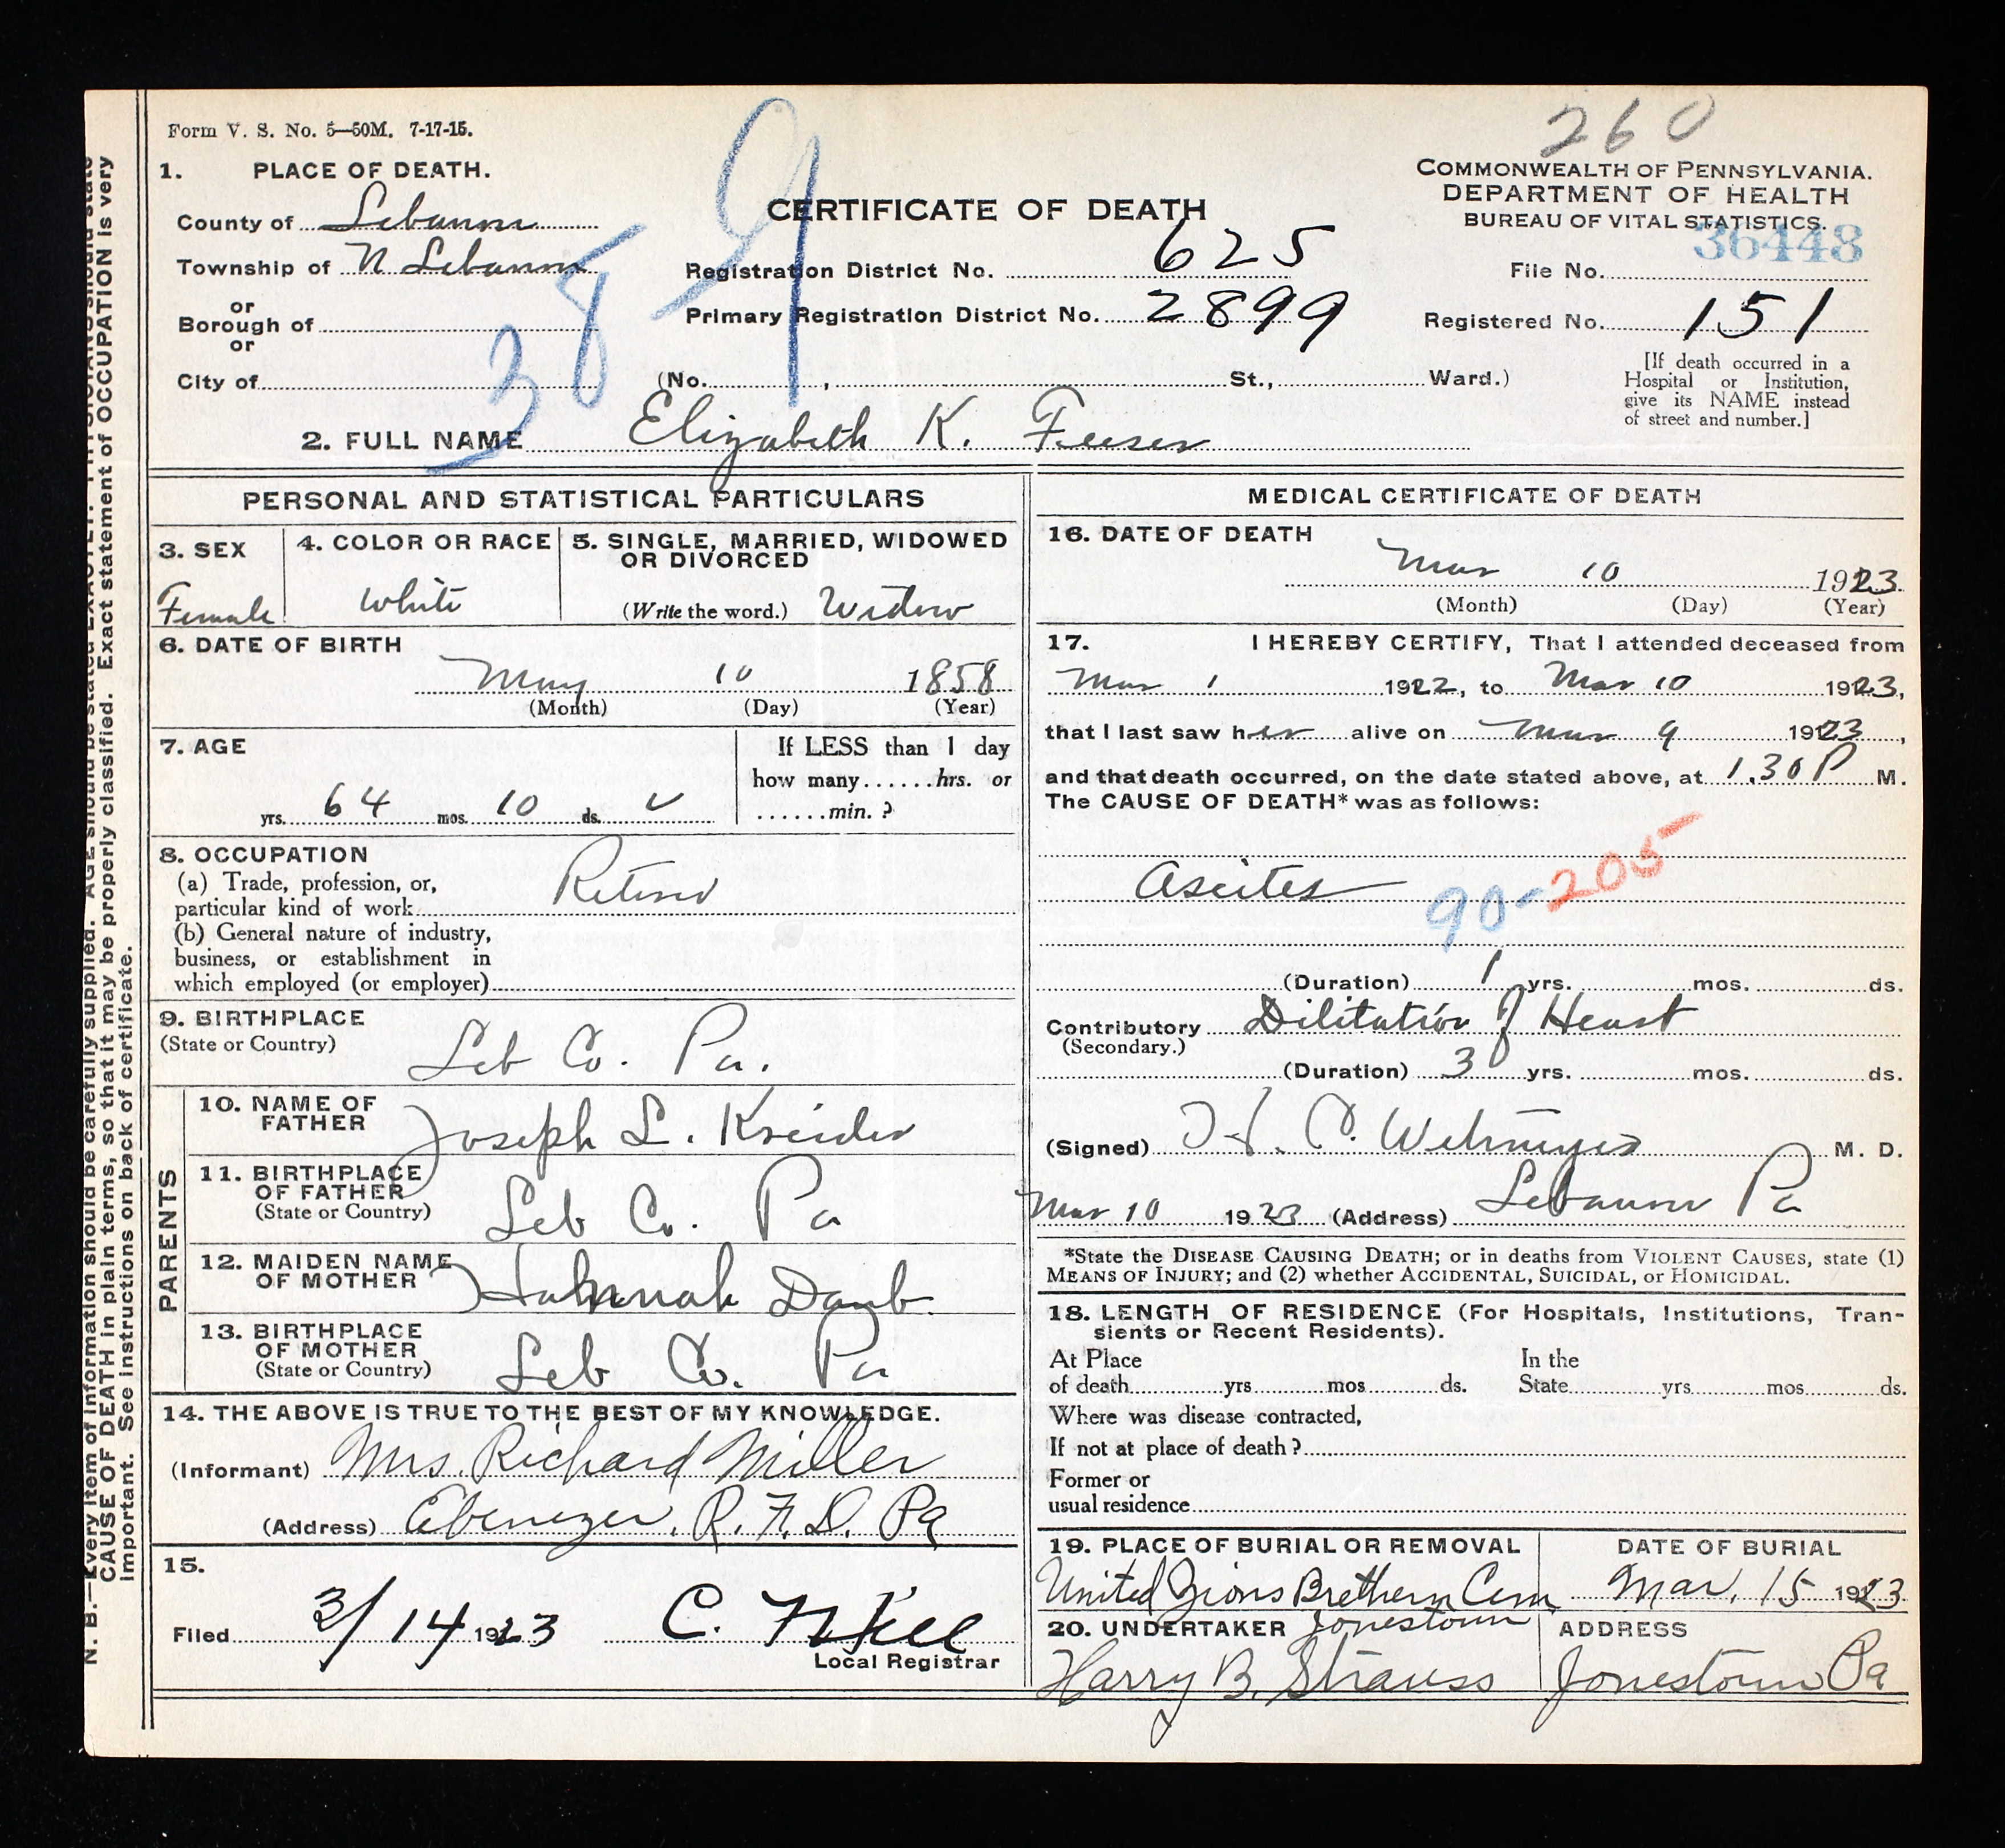 260
Form V. S. No. 5—50M. 7-17-15.
1. PLACE OF DEATH.
County of Lebanon
Township of N Lebanon
or
Borough of
or
City of
389
CERTIFICATE OF DEATH
Registration District No. 625
Primary Registration District No. 2899
(No. , St., Ward.)
COMMONWEALTH OF PENNSYLVANIA.
DEPARTMENT OF HEALTH
BUREAU OF VITAL STATISTICS.
36448
File No.
Registered No. 151
[If death occurred in a
Hospital or Institution,
give its NAME instead
of street and number.]
2. FULL NAME Elizabeth K. Feeser
PERSONAL AND STATISTICAL PARTICULARS
3. SEX
Female
4. COLOR OR RACE
White
5. SINGLE, MARRIED, WIDOWED
OR DIVORCED
(Write the word.) Widow
6. DATE OF BIRTH
May 10 1858
(Month) (Day) (Year)
7. AGE
64 yrs. 10 mos. ds.
If LESS than 1 day
how many......hrs. or
......min. ?
8. OCCUPATION
(a) Trade, profession, or,
particular kind of work Retired
(b) General nature of industry,
business, or establishment in
which employed (or employer)
9. BIRTHPLACE
(State or Country)
Leb Co. Pa.
PARENTS
10. NAME OF
FATHER
Joseph L. Kreider
11. BIRTHPLACE
OF FATHER
(State or Country)
Leb Co. Pa
12. MAIDEN NAME
OF MOTHER
Hahnnah Daub
13. BIRTHPLACE
OF MOTHER
(State or Country)
Leb Co. Pa
14. THE ABOVE IS TRUE TO THE BEST OF MY KNOWLEDGE.
(Informant) Mrs. Richard Miller
(Address) Ebenezer, R.F.D. Pa
15.
Filed 3/14 1923 C.
Local Registrar
MEDICAL CERTIFICATE OF DEATH
16. DATE OF DEATH
Mar 10 1923
(Month) (Day) (Year)
17. I HEREBY CERTIFY, That I attended deceased from
Mar 1 1922, to Mar 10 1923,
that I last saw her alive on Mar 9 1923,
and that death occurred, on the date stated above, at 1.30 P M.
The CAUSE OF DEATH* was as follows:
Ascites
90-205
(Duration) 1 yrs. mos. ds.
Contributory Dilitation of Heart
(Secondary.)
(Duration) 3 yrs. mos. ds.
(Signed) H. C. M. D.
Mar 10 1923 (Address) Lebanon Pa
*State the DISEASE CAUSING DEATH; or in deaths from VIOLENT CAUSES, state (1)
MEANS OF INJURY; and (2) whether ACCIDENTAL, SUICIDAL, or HOMICIDAL.
18. LENGTH OF RESIDENCE (For Hospitals, Institutions, Tran-
sients or Recent Residents).
At Place In the
of death yrs mos ds. State yrs mos ds.
Where was disease contracted,
If not at place of death ?
Former or
usual residence
19. PLACE OF BURIAL OR REMOVAL
United Zions Brethern Cem
Jonestown
DATE OF BURIAL
Mar. 15 1923
20. UNDERTAKER
Harry B. Strauss
ADDRESS
Jonestown Pa
N. B.—Every item of information should be carefully supplied. AGE should be stated EXACTLY. PHYSICIANS should state
CAUSE OF DEATH in plain terms, so that it may be properly classified. Exact statement of OCCUPATION is very
important. See instructions on back of certificate.